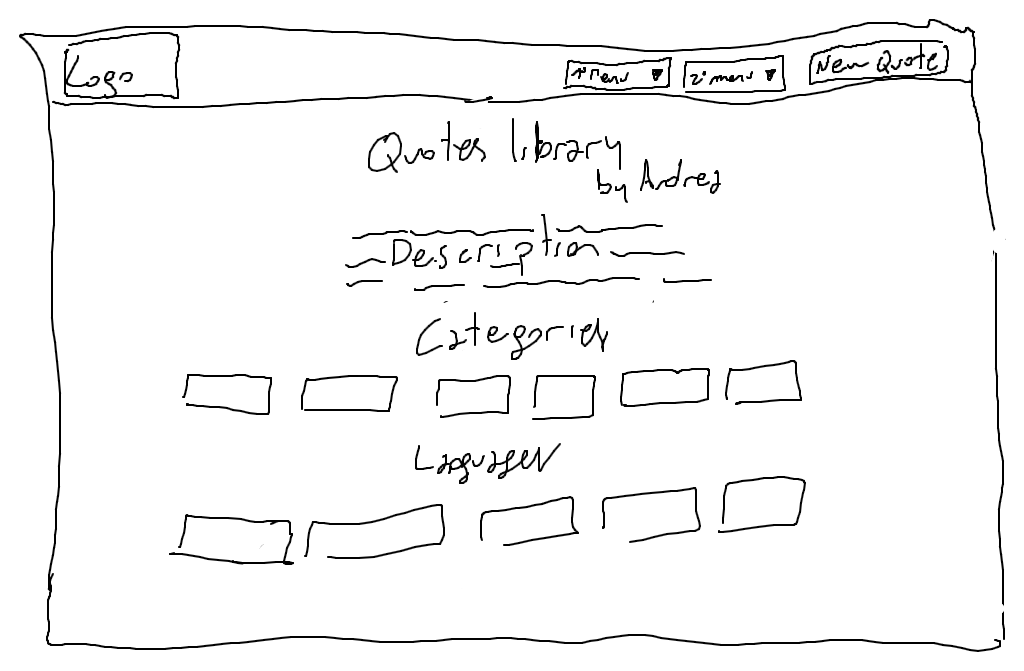 Logo
1° Menu ▼
2° menu ▼
New Quote
Quotes library
by Andrea
Description
Categories
Languages